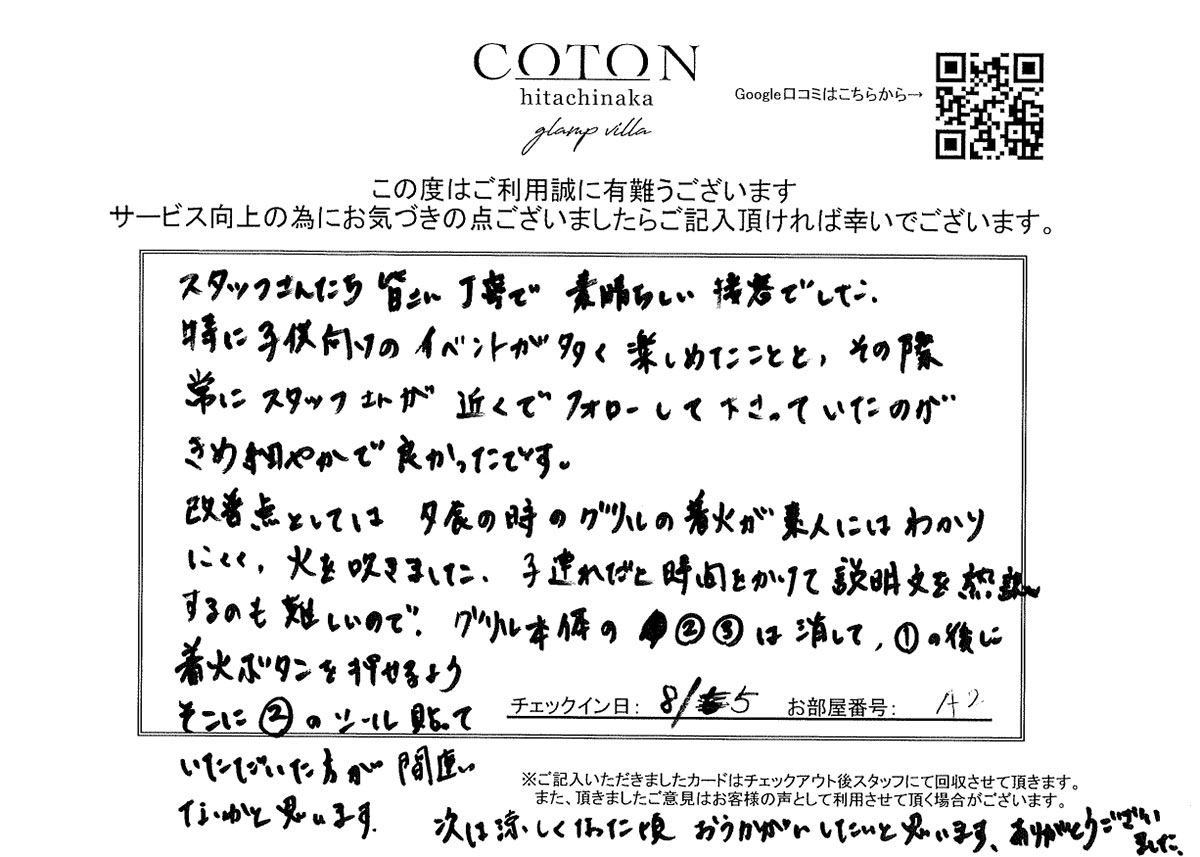 COTON
hitachinaka
glamp villa
Google口コミはこちらから→
この度はご利用誠に有難うございます
サービス向上の為にお気づきの点ございましたらご記入頂ければ幸いでございます。
スタッフさんたち 皆さん 丁寧で 素晴らしい 接客でした。
特に子供向けのイベントが多く楽しめたことと、その際
常にスタッフさんが 近くでフォローして下さっていたのが
きめ細やかで良かったです。
改善点としては 夕食の時のグリルの着火が素人にはわかり
にくく、火を吹きました。子連れだと時間をかけて説明文を熟読
するのも難しいので、グリル本体の ②③は消して、①の後に
着火ボタンを押せるよう
そこに②のシール貼って
いただいた方が間違い
ないかと思います。
チェックイン日: 8/5 お部屋番号: A2
※ご記入いただきましたカードはチェックアウト後スタッフにて回収させて頂きます。
また、頂きましたご意見はお客様の声として利用させて頂く場合がございます。
次は涼しくなった頃 おうかがいしたいと思います、ありがとうございました。